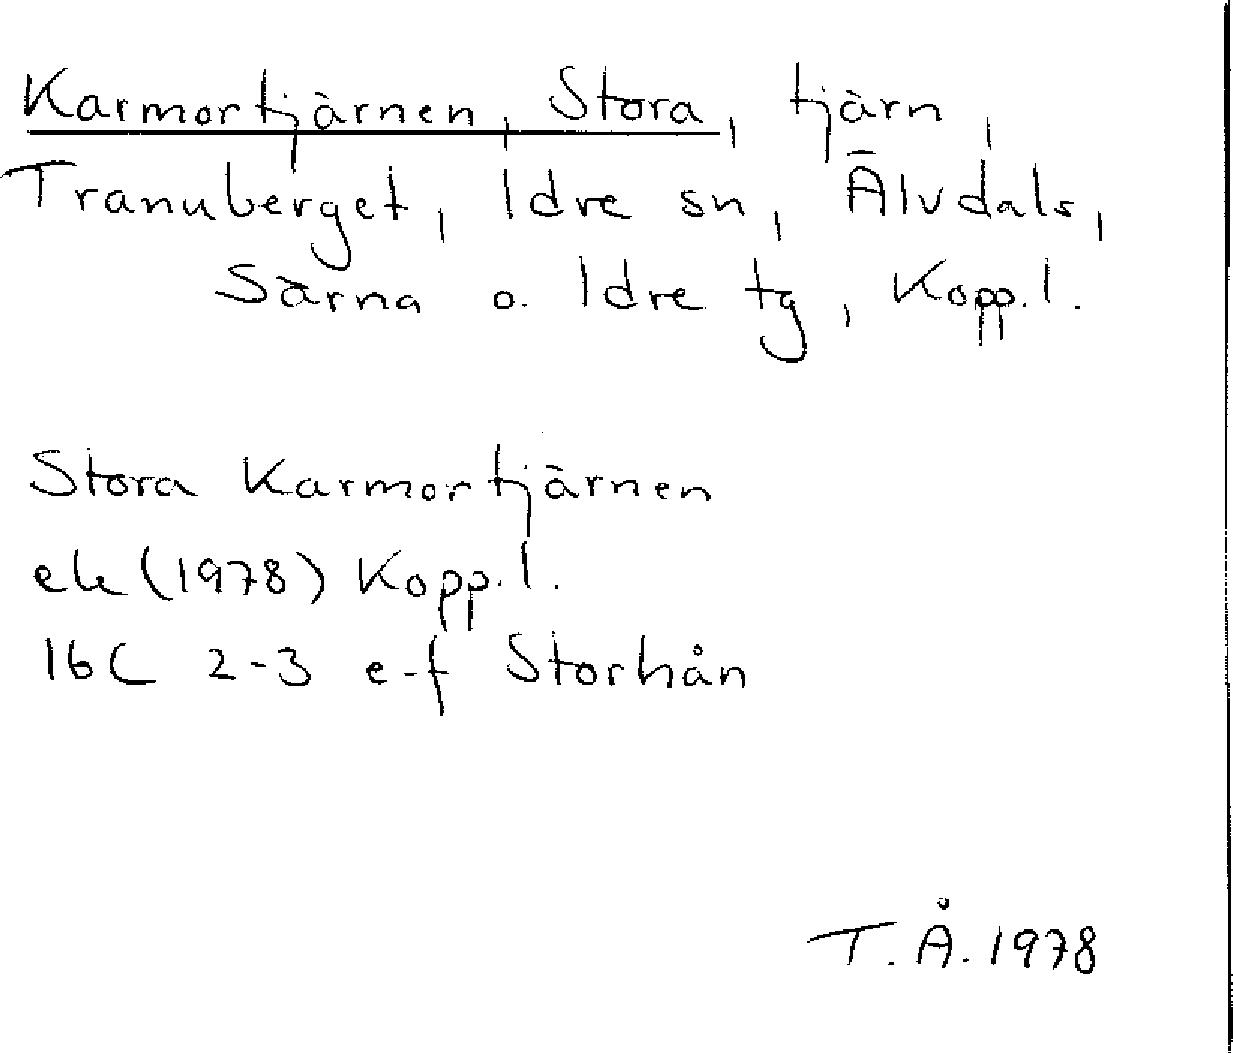 Karmortjärnen, Stora, tjärn,
Tranuberget, Idre sn, Älvdals,
Särna o. Idre tg, Kopp.l.
Stora Karmortjärnen
ek (1978) Kopp.l.
16C 2-3 e-f Storhån
T.Å. 1978